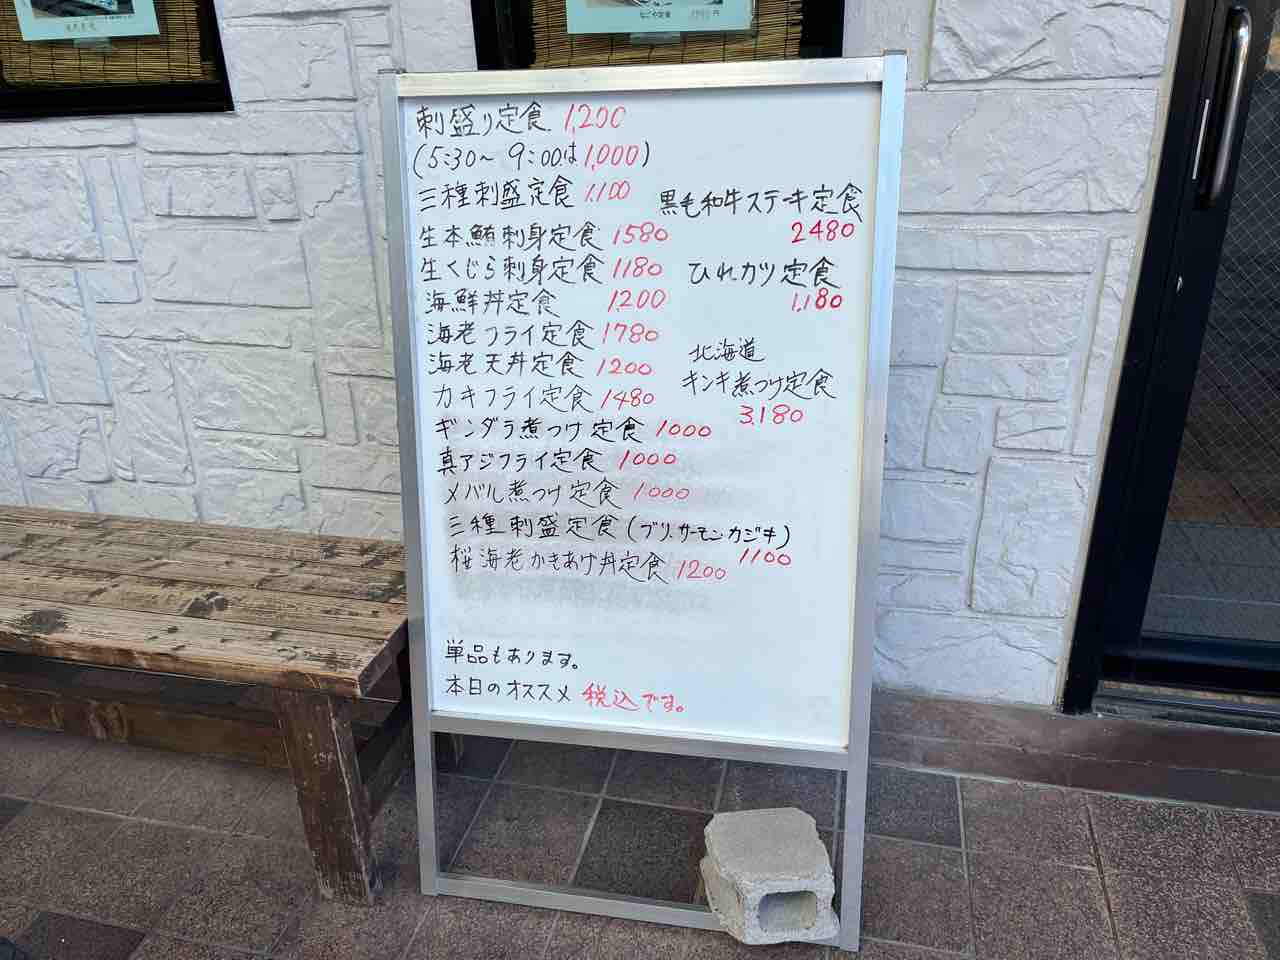 刺盛り定食 1,200
(5:30～9:00は1,000)
三種刺盛定食 1,100
生本鮪刺身定食 1580
生くじら刺身定食 1180
海鮮丼定食 1,200
海老フライ定食 1780
海老天丼定食 1200
カキフライ定食 1480
ギンダラ煮つけ定食 1000
真アジフライ定食 1000
メバル煮つけ定食 1000
三種刺盛定食(ブリ.サーモン.カジキ)
1100
桜海老かきあげ丼定食 1200
黒毛和牛ステーキ定食
2480
ひれカツ定食
1,180
北海道
キンキ煮つけ定食
3,180
単品もあります。
本日のオススメ 税込です。
なごや定食